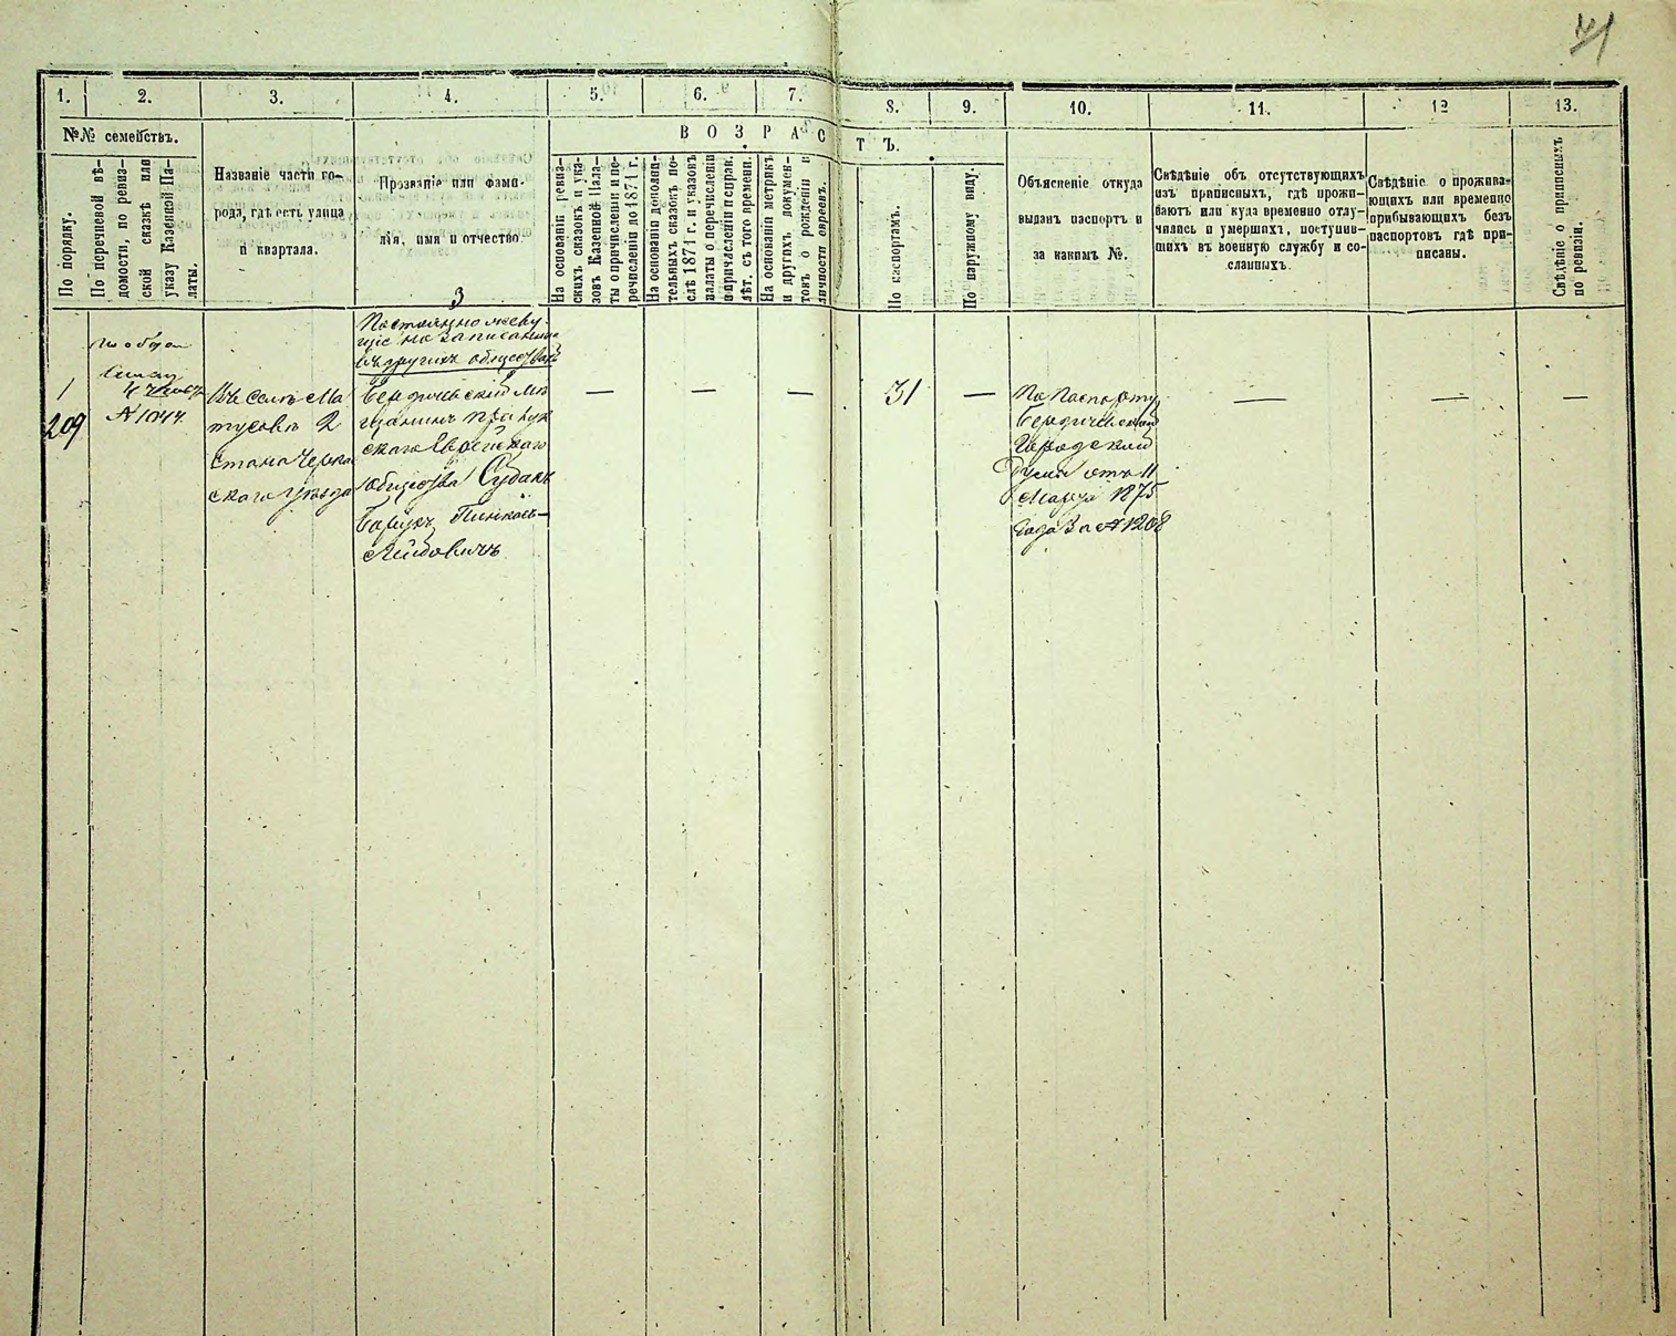 41
1.
2.
3.
4.
5.
6.
7.
8.
9.
10.
11.
12
13.
№№ семействъ.
По порядку.
По перечневой вѣ-
домости, по ревиз-
ской сказкѣ или
указу Казенной Па-
латы.
Названіе части го-
рода, гдѣ есть улица
и квартала.
Прозваніе или фами-
лія, имя и отчество.
ВОЗРАСТЪ.
На основаніи ревиз-
скихъ сказокъ и ука-
зовъ Казенной Пала-
ты о причисленіи и пе-
речисленіи до 1871 г.
На основаніи дополни-
тельныхъ сказокъ по-
слѣ 1871 г. и указовъ
палаты о перечисленіи
и причисленіи и справ.
лѣт. съ того времени.
На основаніи метрикъ
и другихъ докумен-
товъ о рожденіи и
личности евреевъ.
По паспортамъ.
По наружному виду.
Объясненіе откуда
выданъ паспортъ и
за какимъ №.
Свѣдѣніе объ отсутствующихъ
изъ приписныхъ, гдѣ прожи-
ваютъ или куда временно отлу-
чились и умершихъ, поступив-
шихъ въ военную службу и со-
сланныхъ.
Свѣдѣніе о прожива-
ющихъ или временно
прибывающихъ безъ
паспортовъ гдѣ при-
писаны.
Свѣдѣніе о приписныхъ
по ревизіи.
3
Постоянно живу
щіе но записанные
въ другихъ обществахъ
1
209
№ 1044
Въ селѣ Ма
тусовѣ 2
Стана Черка
скаго уѣзда
Бердичевскій мѣ
щанинъ
скаго Еврейскаго
общества Судакъ
Борухъ Пинкась-
Лейбовичъ
—
—
—
31
—
По Паспорту
Бердичевской
Городской
Думы отъ 11
Марта 1875
года За № 1208
—
—
—